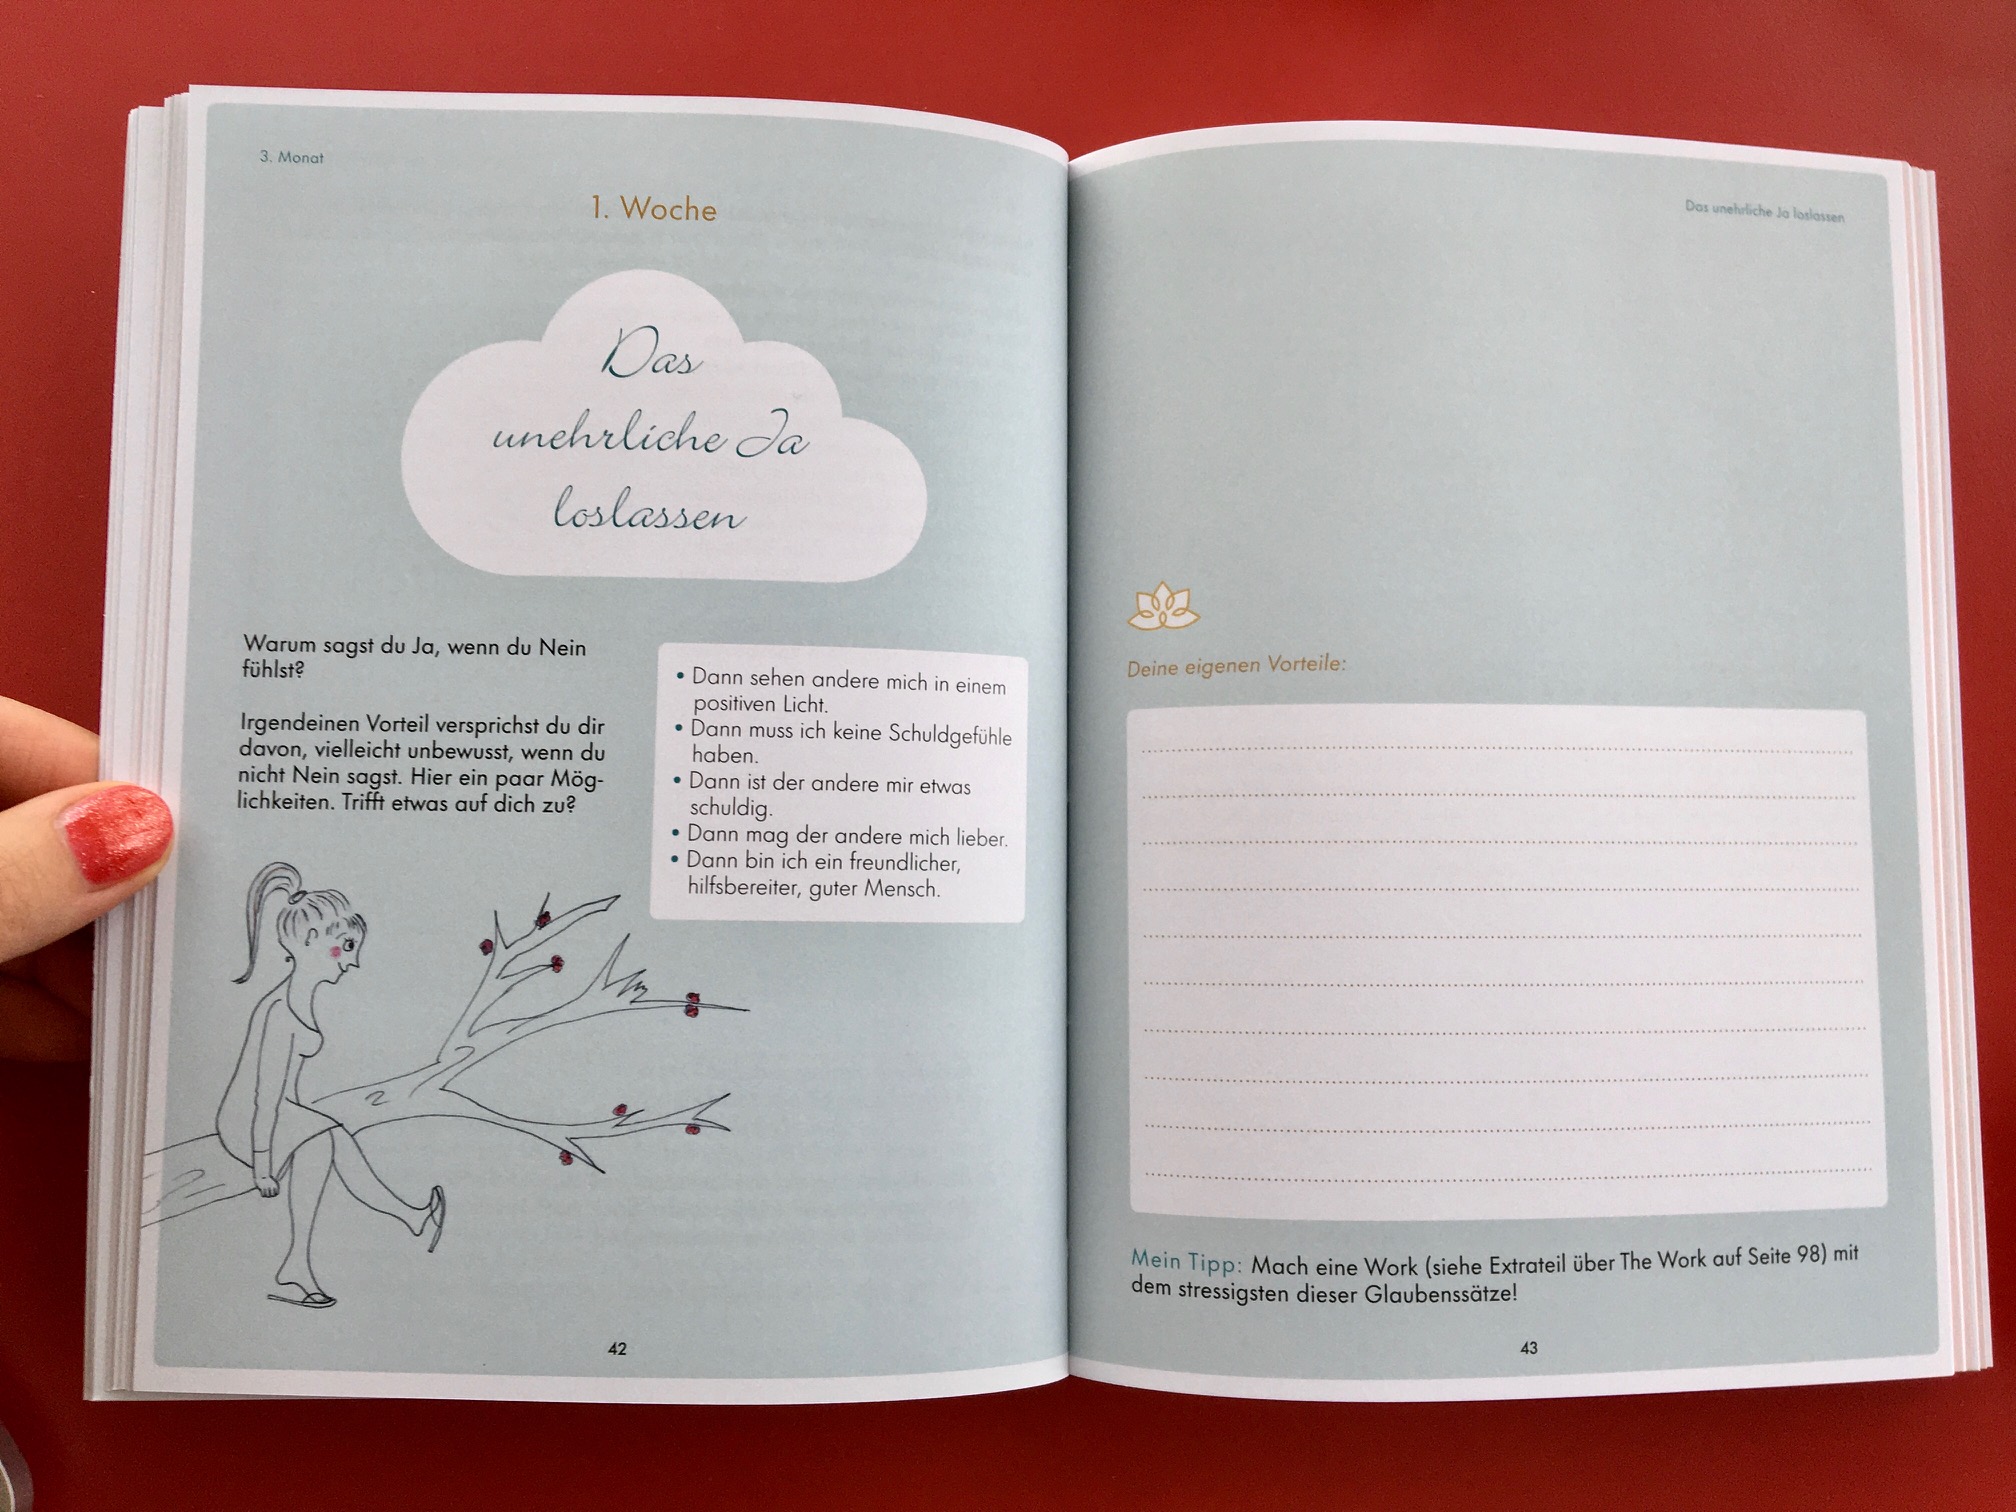 3. Monat
1. Woche
Das
unehrliche Ja
loslassen
Warum sagst du Ja, wenn du Nein
fühlst?
Irgendeinen Vorteil versprichst du dir
davon, vielleicht unbewusst, wenn du
nicht Nein sagst. Hier ein paar Mög-
lichkeiten. Trifft etwas auf dich zu?
• Dann sehen andere mich in einem
positiven Licht.
• Dann muss ich keine Schuldgefühle
haben.
• Dann ist der andere mir etwas
schuldig.
• Dann mag der andere mich lieber.
• Dann bin ich ein freundlicher,
hilfsbereiter, guter Mensch.
42
Das unehrliche Ja loslassen
Deine eigenen Vorteile:
Mein Tipp: Mach eine Work (siehe Extrateil über The Work auf Seite 98) mit
dem stressigsten dieser Glaubenssätze!
43